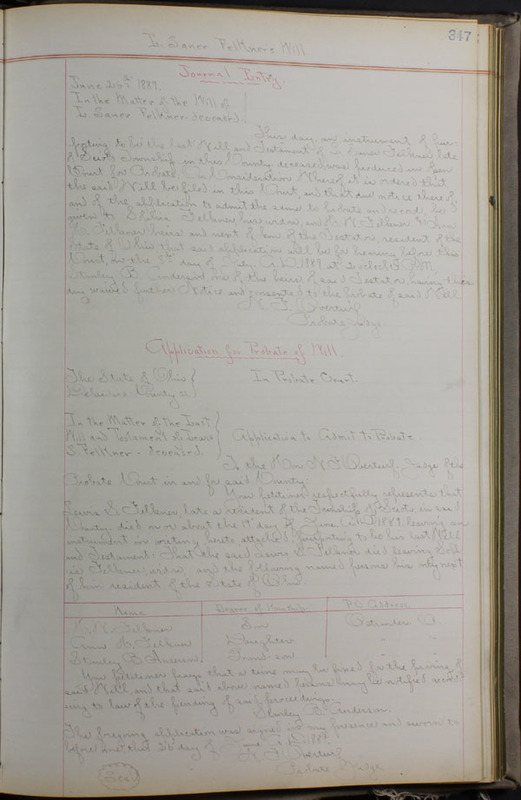 347
L. Saner Felkner's Will
Journal Entry.
June 26th 1889.
In the Matter of the Will of
L. Saner Felkner deceased.
This day an instrument of
purporting to be the last Will and Testament of L. Saner Felkner late
of Scioto Township in this County deceased was produced in open
Court for Probate. On Consideration Whereof it is ordered that
the said Will be filed in this Court, and that due notice thereof,
and of the application to admit the same to probate and record, be
given to Felkner, widow, and Felkner
Felkner heirs and next of kin of the Testator, resident of the
State of Ohio that said application will be for hearing before this
Court, on the day of A.D. 1889 at o'clock P.M.
Stanley B. Anderson one of the heirs of said Testator having
waived further Notice and consented to the probate of said Will
Overturf
Probate Judge
Application for Probate of Will.
The State of Ohio
Delaware County ss
In Probate Court.
In the Matter of the Last
Will and Testament of Lewis
S. Felkner - deceased.
Application to Admit to Probate.
To the Hon. Overturf, Judge of the
Probate Court in and for said County:
Your petitioner respectfully represents that
Lewis S. Felkner late a resident of the Township of Scioto, in said
County, died on or about the day of June A.D. 1889 leaving an
instrument in writing, hereto attached purporting to be his last Will
and Testament. That the said Lewis S. Felkner died leaving
Felkner, widow, and the following named persons his only next
of kin resident of the State of Ohio
Name Degree of Kinship P.O. Address
Felkner Son Ostrander O.
Felkner Daughter " "
Stanley B. Anderson Grand-son " "
Your petitioner prays that a time may be fixed for the proving of
said Will, and that said above named persons may be notified
ing to law of the pendency of said proceedings.
Stanley B. Anderson.
The foregoing application was signed in my presence and sworn to
before me this 26" day of June A.D. 1889
Overturf
Probate Judge.
Seal